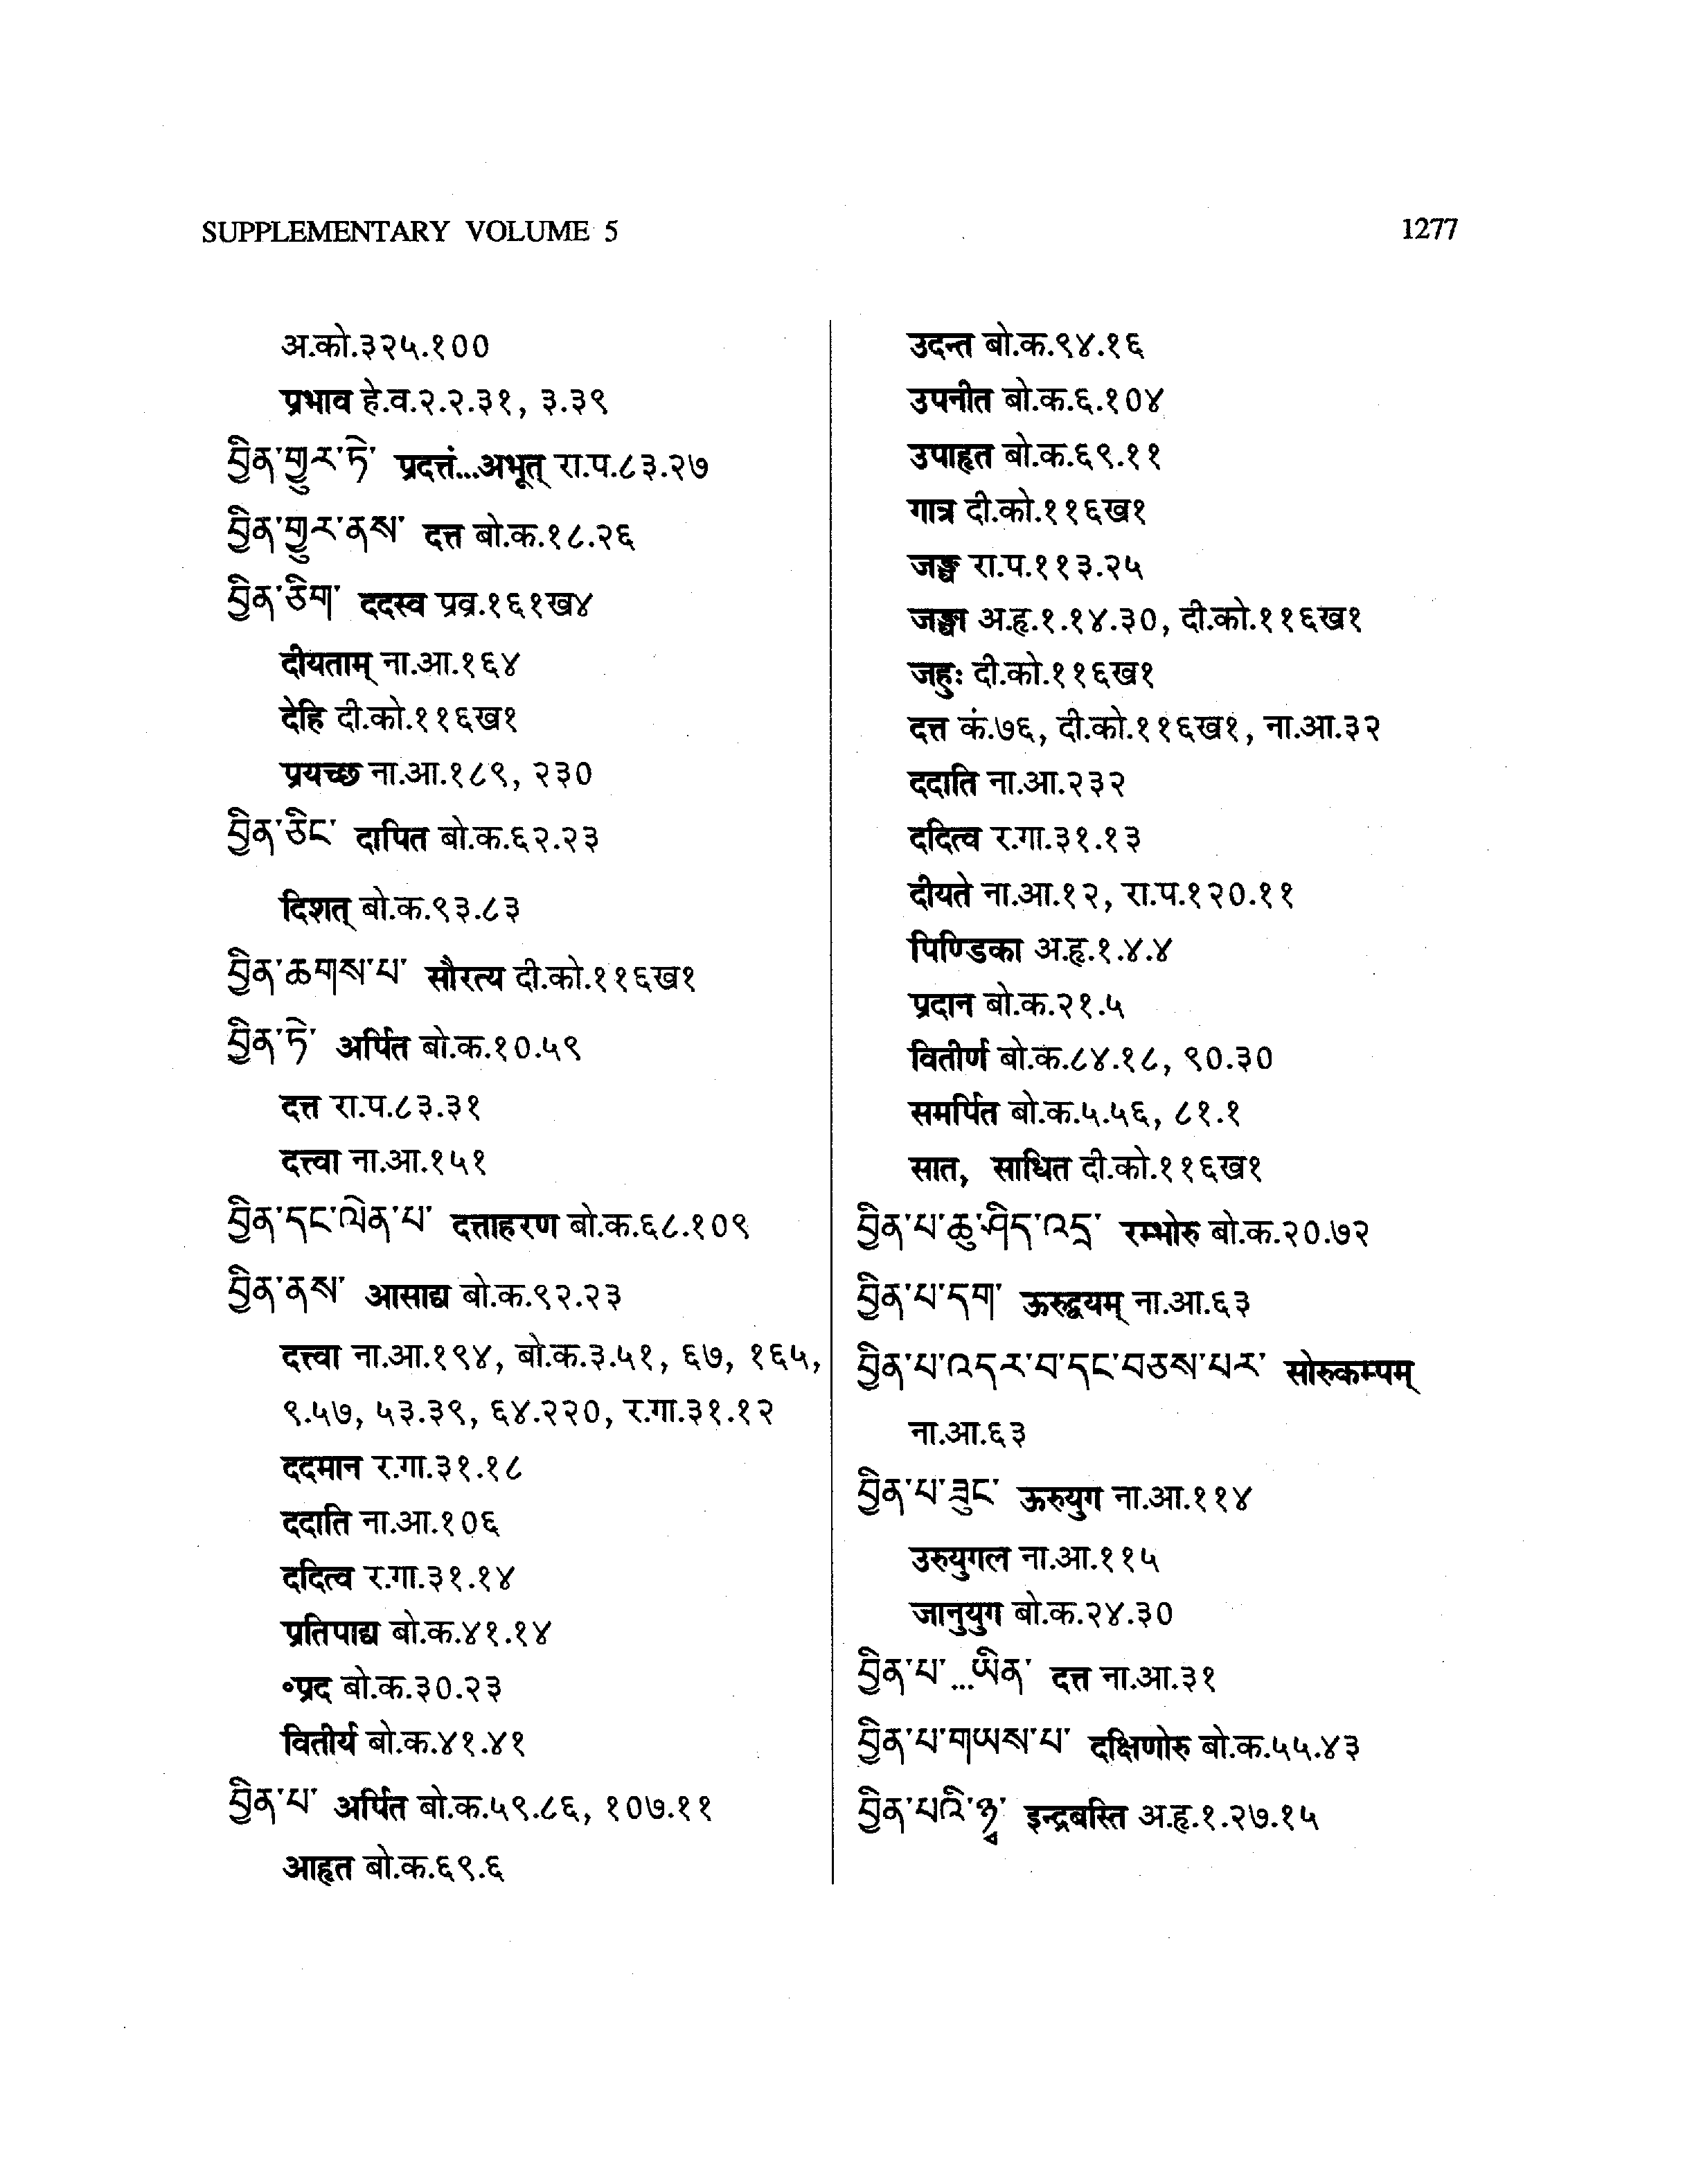 SUPPLEMENTARY VOLUME 5
1277
अ.को.३२५.१००
प्रभाव हे.व.२.२.३१, ३.३९
བྱིན་གྱུར་ཏེ་ प्रदत्तं...अभूत् रा.प.८३.२७
བྱིན་གྱུར་ནས་ दत्त बो.क.१८.२६
བྱིན་ཅིག་ ददस्व प्रव्र.१६१ख४
दीयताम् ना.आ.१६४
देहि दी.को.११६ख१
प्रयच्छ ना.आ.१८९, २३०
བྱིན་ཅིང་ दापित बो.क.६२.२३
दिशत् बो.क.९३.८३
བྱིན་ཆགས་པ་ सौरत्य दी.को.११६ख१
བྱིན་ཏེ་ अर्पित बो.क.१०.५९
दत्त रा.प.८३.३१
दत्त्वा ना.आ.१५१
བྱིན་དང་ལེན་པ་ दत्ताहरण बो.क.६८.१०९
བྱིན་ནས་ आसाद्य बो.क.९२.२३
दत्त्वा ना.आ.१९४, बो.क.३.५१, ६७, १६५,
९.५७, ५३.३९, ६४.२२०, र.गा.३१.१२
ददमान र.गा.३१.१८
ददाति ना.आ.१०६
ददित्व र.गा.३१.१४
प्रतिपाद्य बो.क.४१.१४
॰प्रद बो.क.३०.२३
वितीर्य बो.क.४१.४१
བྱིན་པ་ अर्पित बो.क.५९.८६, १०७.११
आहृत बो.क.६९.६
उदन्त बो.क.९४.१६
उपनीत बो.क.६.१०४
उपाहृत बो.क.६९.११
गात्र दी.को.११६ख१
जङ्घ रा.प.११३.२५
जङ्घा अ.हृ.१.१४.३०, दी.को.११६ख१
जहुः दी.को.११६ख१
दत्त कं.७६, दी.को.११६ख१, ना.आ.३२
ददाति ना.आ.२३२
ददित्व र.गा.३१.१३
दीयते ना.आ.१२, रा.प.१२०.११
पिण्डिका अ.हृ.१.४.४
प्रदान बो.क.२१.५
वितीर्ण बो.क.८४.१८, ९०.३०
समर्पित बो.क.५.५६, ८१.१
सात, साधित दी.को.११६ख१
བྱིན་པ་ཆུ་ཤིད་འདྲ་ रम्भोरु बो.क.२०.७२
བྱིན་པ་དག་ ऊरुद्वयम् ना.आ.६३
བྱིན་པ་འདར་བ་དང་བཅས་པར་ सोरुकम्पम्
ना.आ.६३
བྱིན་པ་ཟུང་ ऊरुयुग ना.आ.११४
उरुयुगल ना.आ.११५
जानुयुग बो.क.२४.३०
བྱིན་པ་...ཡིན་ दत्त ना.आ.३१
བྱིན་པ་གཡས་པ་ दक्षिणोरु बो.क.५५.४३
བྱིན་པའི་ཉྭ་ इन्द्रबस्ति अ.हृ.१.२७.१५